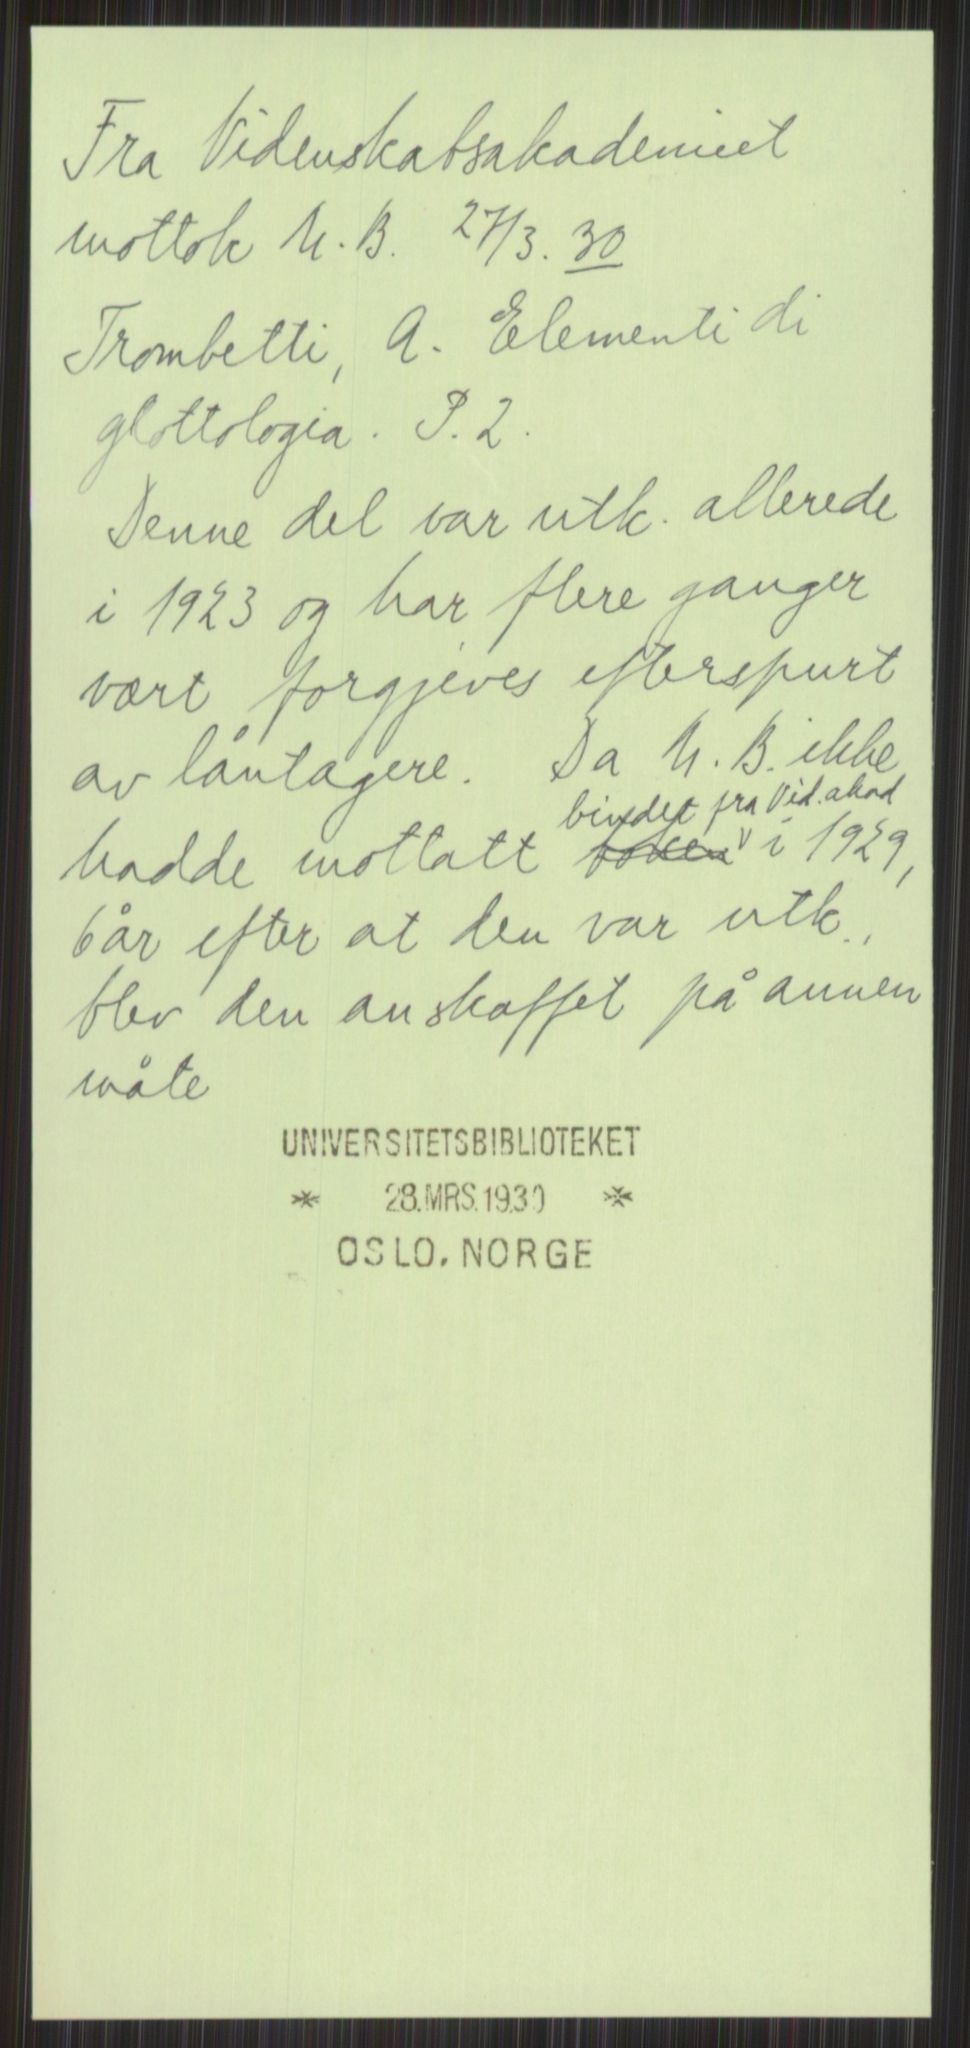 Fra Videnskabsakademiet
mottok U.B. 27/3. 30
Trombetti, A. Elementi di
glottologia. P. 2.
Denne del var utk. allerede
i 1923 og har flere ganger
vært forgjeves efterspurt
av låntagere. Da U.B. ikke
bindet fra Vid.akad
hadde mottatt boken i 1929,
6 år efter at den var utk.,
blev den anskaffet på annen
måte
UNIVERSITETSBIBLIOTEKET
* 28.MRS.1930 *
OSLO. NORGE